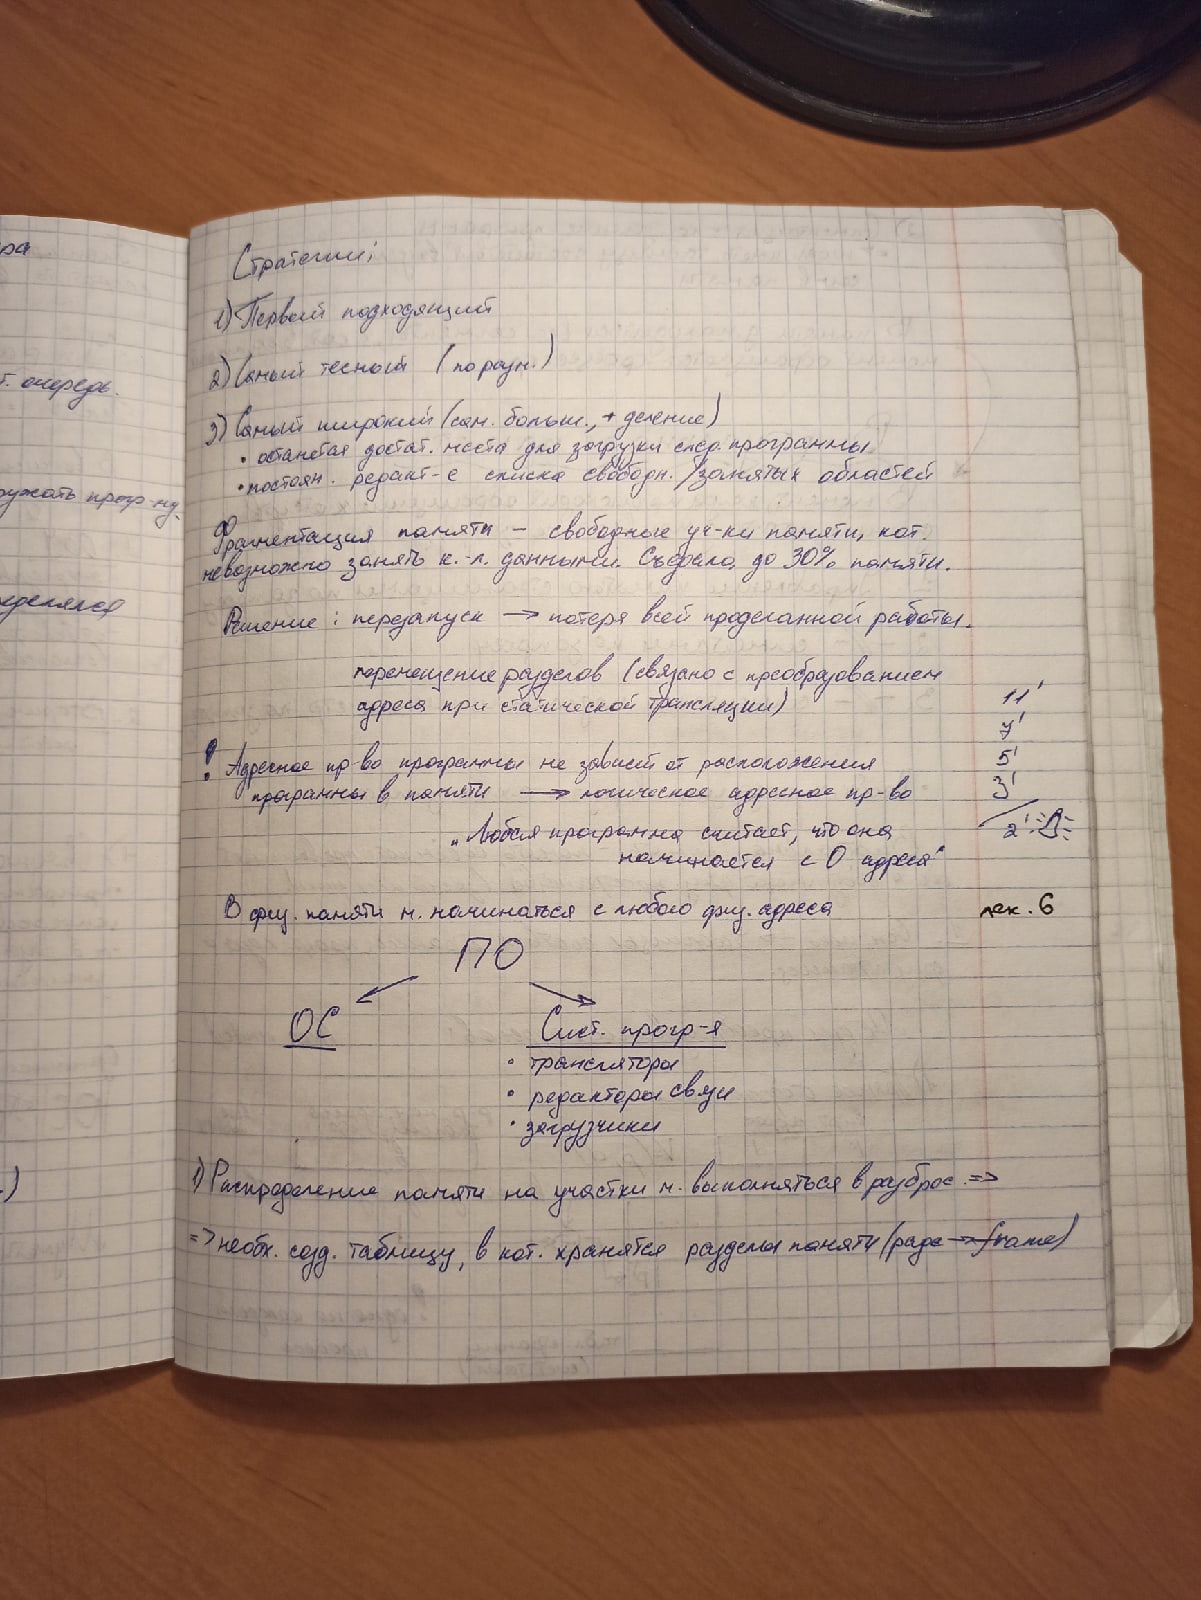 ра
т. очередь.
ружать прогр-му.
ределялся
.)
Стратегии:
1) Первый подходящий
2) Самый тесный (по разн.)
3) Самый широкий (сам. больш., + деление)
• останется достат. места для загрузки след. программы
• постоян. редакт-е списка свободн. / занятых областей
Фрагментация памяти – свободные уч-ки памяти, кот.
невозможно занять к.-л. данными. Съедала до 30% памяти.
Решение: перезапуск → потеря всей проделанной работы.
перемещение разделов (связано с преобразованием
адреса при статической трансляции)
11'
7'
! Адресное пр-во программы не зависит от расположения
5'
программы в памяти → логическое адресное пр-во
3'
„Любая программа считает, что она
2'
начинается с 0 адреса"
В физ. памяти м. начинаться с любого физ. адреса
лек. 6
ПО
ОС
Сист. прогр-я
• трансляторы
• редакторы связи
• загрузчики
1) Распределение памяти на участки м. выполняться в разброс =>
=> необх. созд. таблицу, в кот. хранятся разделы памяти (page → frame)